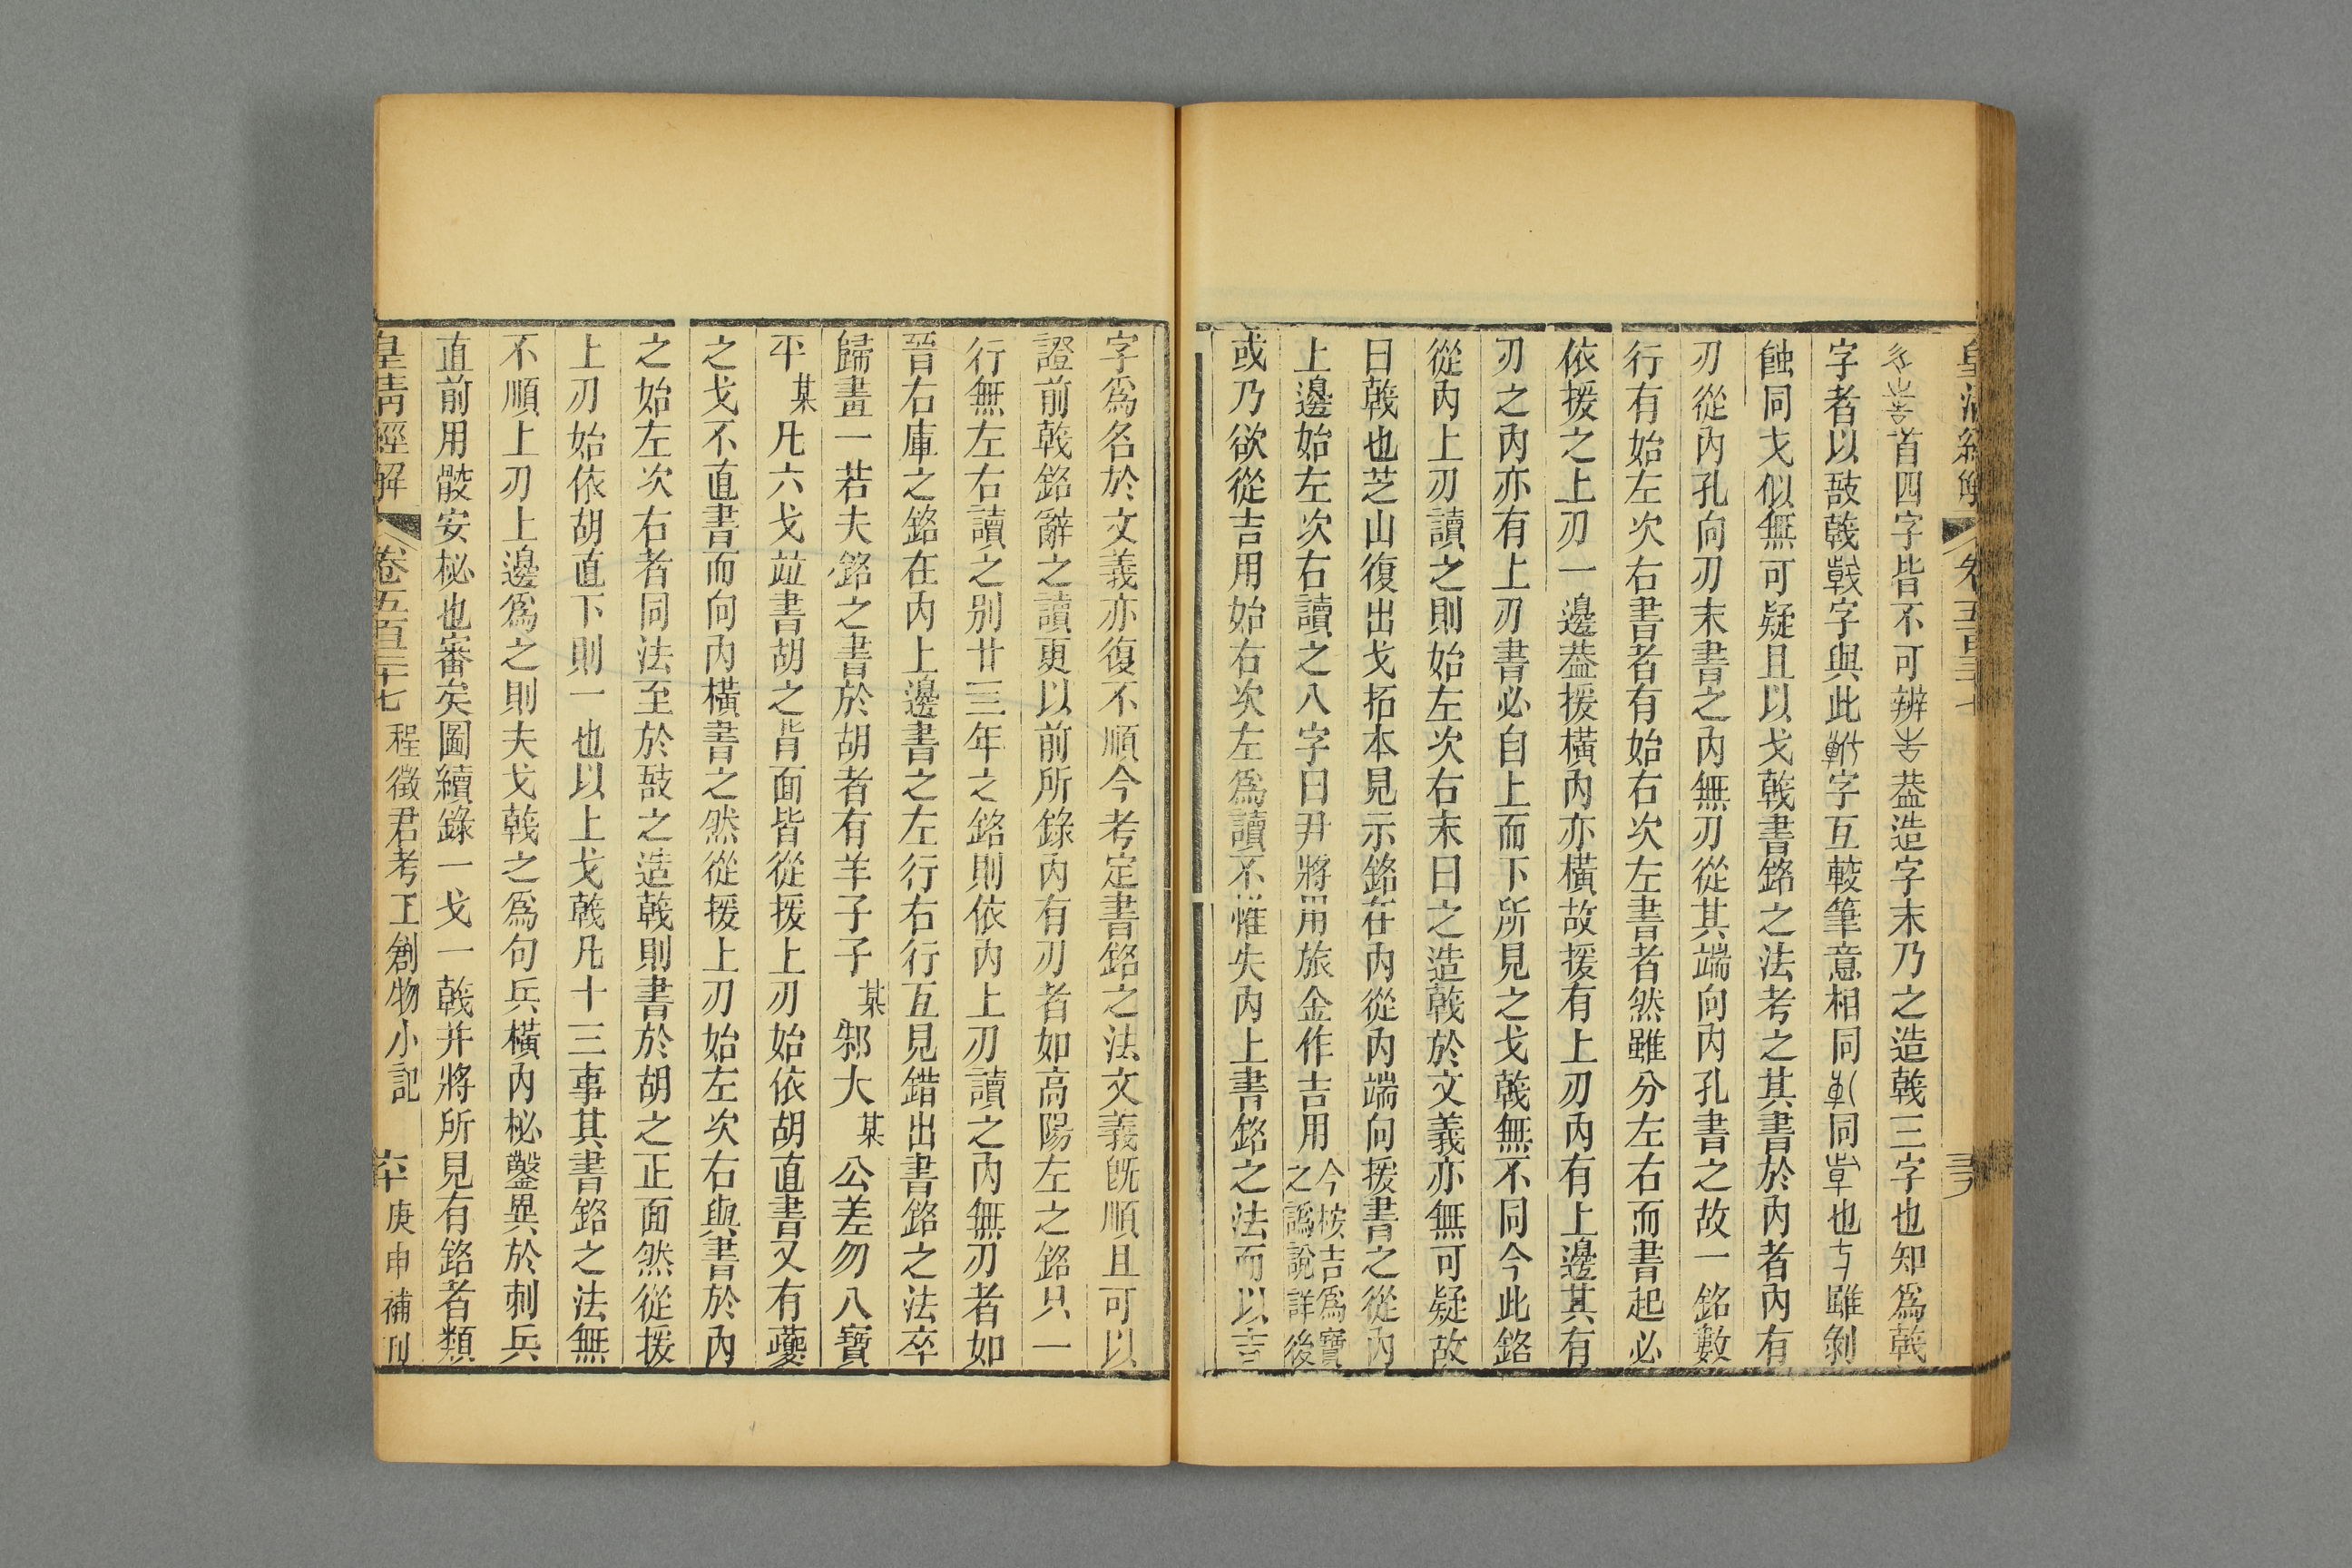 皇清經解 卷五百三十七
首四字皆不可辨蓋造字末乃之造戟三字也知爲戟
字者以敔戟戟字與此字互較筆意相同同也雖剝
蝕同戈似無可疑且以戈戟書銘之法考之其書於內者內有
刃從內孔向刃末書之內無刃從其端向內孔書之故一銘數
行有始左次右書者有始右次左書者然雖分左右而書起必
依援之上刃一邊葢援橫內亦橫故援有上刃內有上邊其有
刃之內亦有上刃書必自上而下所見之戈戟無不同今此銘
從內上刃讀之則始左次右末曰之造戟於文義亦無可疑故
曰戟也芝山復出戈拓本見示銘在內從內端向援書之從內
上邊始左次右讀之八字曰尹將用旅金作吉用今桉吉爲寶之譌說詳後
或乃欲從吉用始右次左爲讀不惟失內上書銘之法而以吉
字爲名於文義亦復不順今考定書銘之法文義旣順且可以
證前戟銘辭之讀更以前所錄內有刃者如高陽左之銘只一
行無左右讀之別廿三年之銘則依內上刃讀之內無刃者如
晉右庫之銘在內上邊書之左行右行互見錯出書銘之法卒
歸畫一若夫銘之書於胡者有羊子子某邾大某公差勿八寶
平某凡六戈竝書胡之背面皆從援上刃始依胡直書又有蘷
之戈不直書而向內橫書之然從援上刃始左次右與書於內
之始左次右者同法至於敔之造戟則書於胡之正面然從援
上刃始依胡直下則一也以上戈戟凡十三事其書銘之法無
不順上刃上邊爲之則夫戈戟之爲句兵橫內柲鑿異於刺兵
直前用骰安柲也審矣圖續錄一戈一戟并將所見有銘者類
皇清經解 卷五百三十七 程徵君考工創物小記 卒 庚申補刊